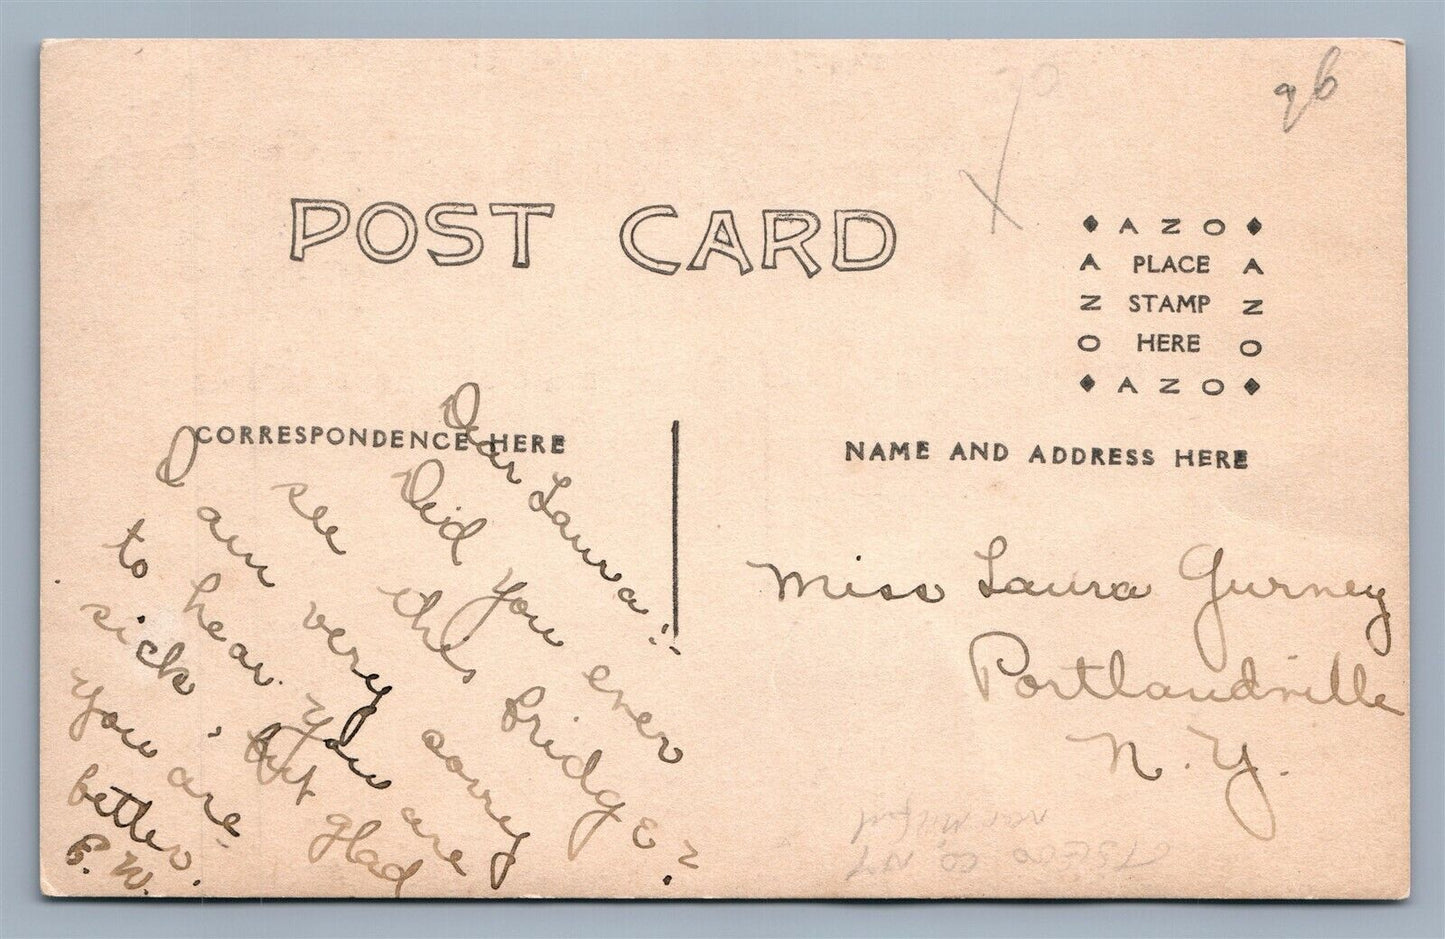 96
POST CARD
AZO
A PLACE A
Z STAMP Z
O HERE O
AZO
CORRESPONDENCE HERE
NAME AND ADDRESS HERE
Dear Laura:-
Did you ever
see this bridge?
I am very sorry
to hear you are
sick, but glad
you are
better.
E. W.
Miss Laura Gurney
Portlandville
N. Y.
OTSEGO CO, NY
near Milford